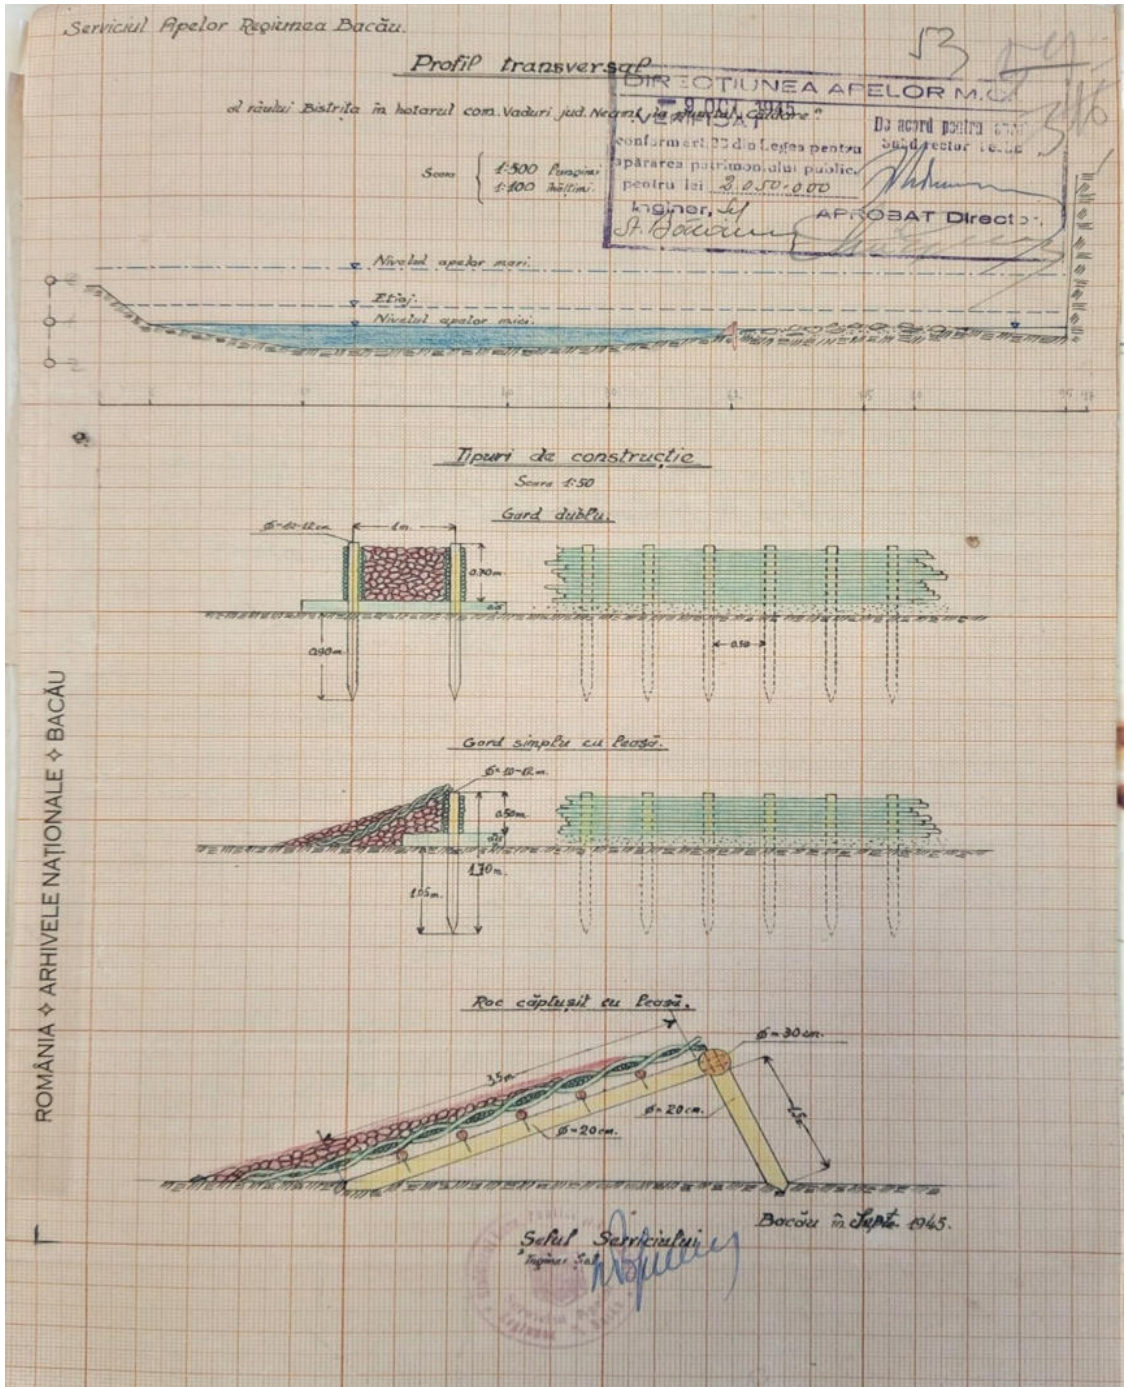 Serviciul Apelor Regiunea Bacău.
53
Profil transversal
al râului Bistrița în hotarul com. Vaduri jud. Neamț la punctul „Căldare"
Scara
1:500 lungimi
1:100 înălțimi
DIRECȚIUNEA APELOR M.
9 OCT. 1945
VERIFICAT
conform art. 23 din Legea pentru
apărarea patrimoniului public,
pentru lei 2.050.000
Inginer, Șef
De acord pentru
Subdirector
APROBAT Director,
Nivelul apelor mari.
Etiaj.
Nivelul apelor mici.
Tipuri de construcție
Scara 1:50
Gard dublu.
Ø=10-12cm.
1m.
0.70m.
0.90m.
0.50
Gard simplu cu leasă.
Ø=10-12m.
0.50m.
1.05m.
1.70m.
Roc căptușit cu leasă.
Ø=30cm.
3.5m.
Ø=20cm.
Ø=20cm.
1.5m
Bacău în Septe. 1945.
Șeful Serviciului,
Inginer Șef
ROMÂNIA ✧ ARHIVELE NAȚIONALE ✧ BACĂU